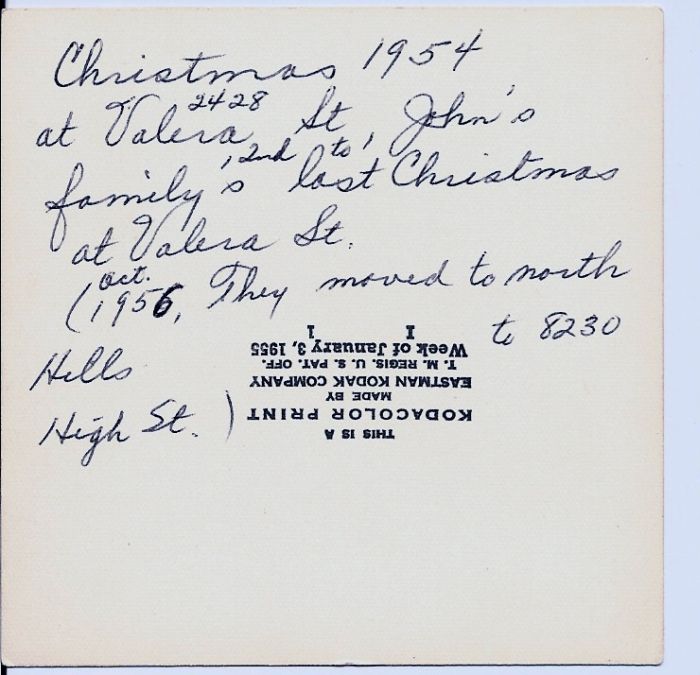 Christmas 1954
2428
at Valera St, John's
'2nd to'
family's last Christmas
at Valera St.
Oct.
(1956, They moved to north
to 8230
Hills
High St. )
THIS IS A
KODACOLOR PRINT
MADE BY
EASTMAN KODAK COMPANY
T. M. REGIS. U. S. PAT. OFF.
Week of January 3, 1955
1 I